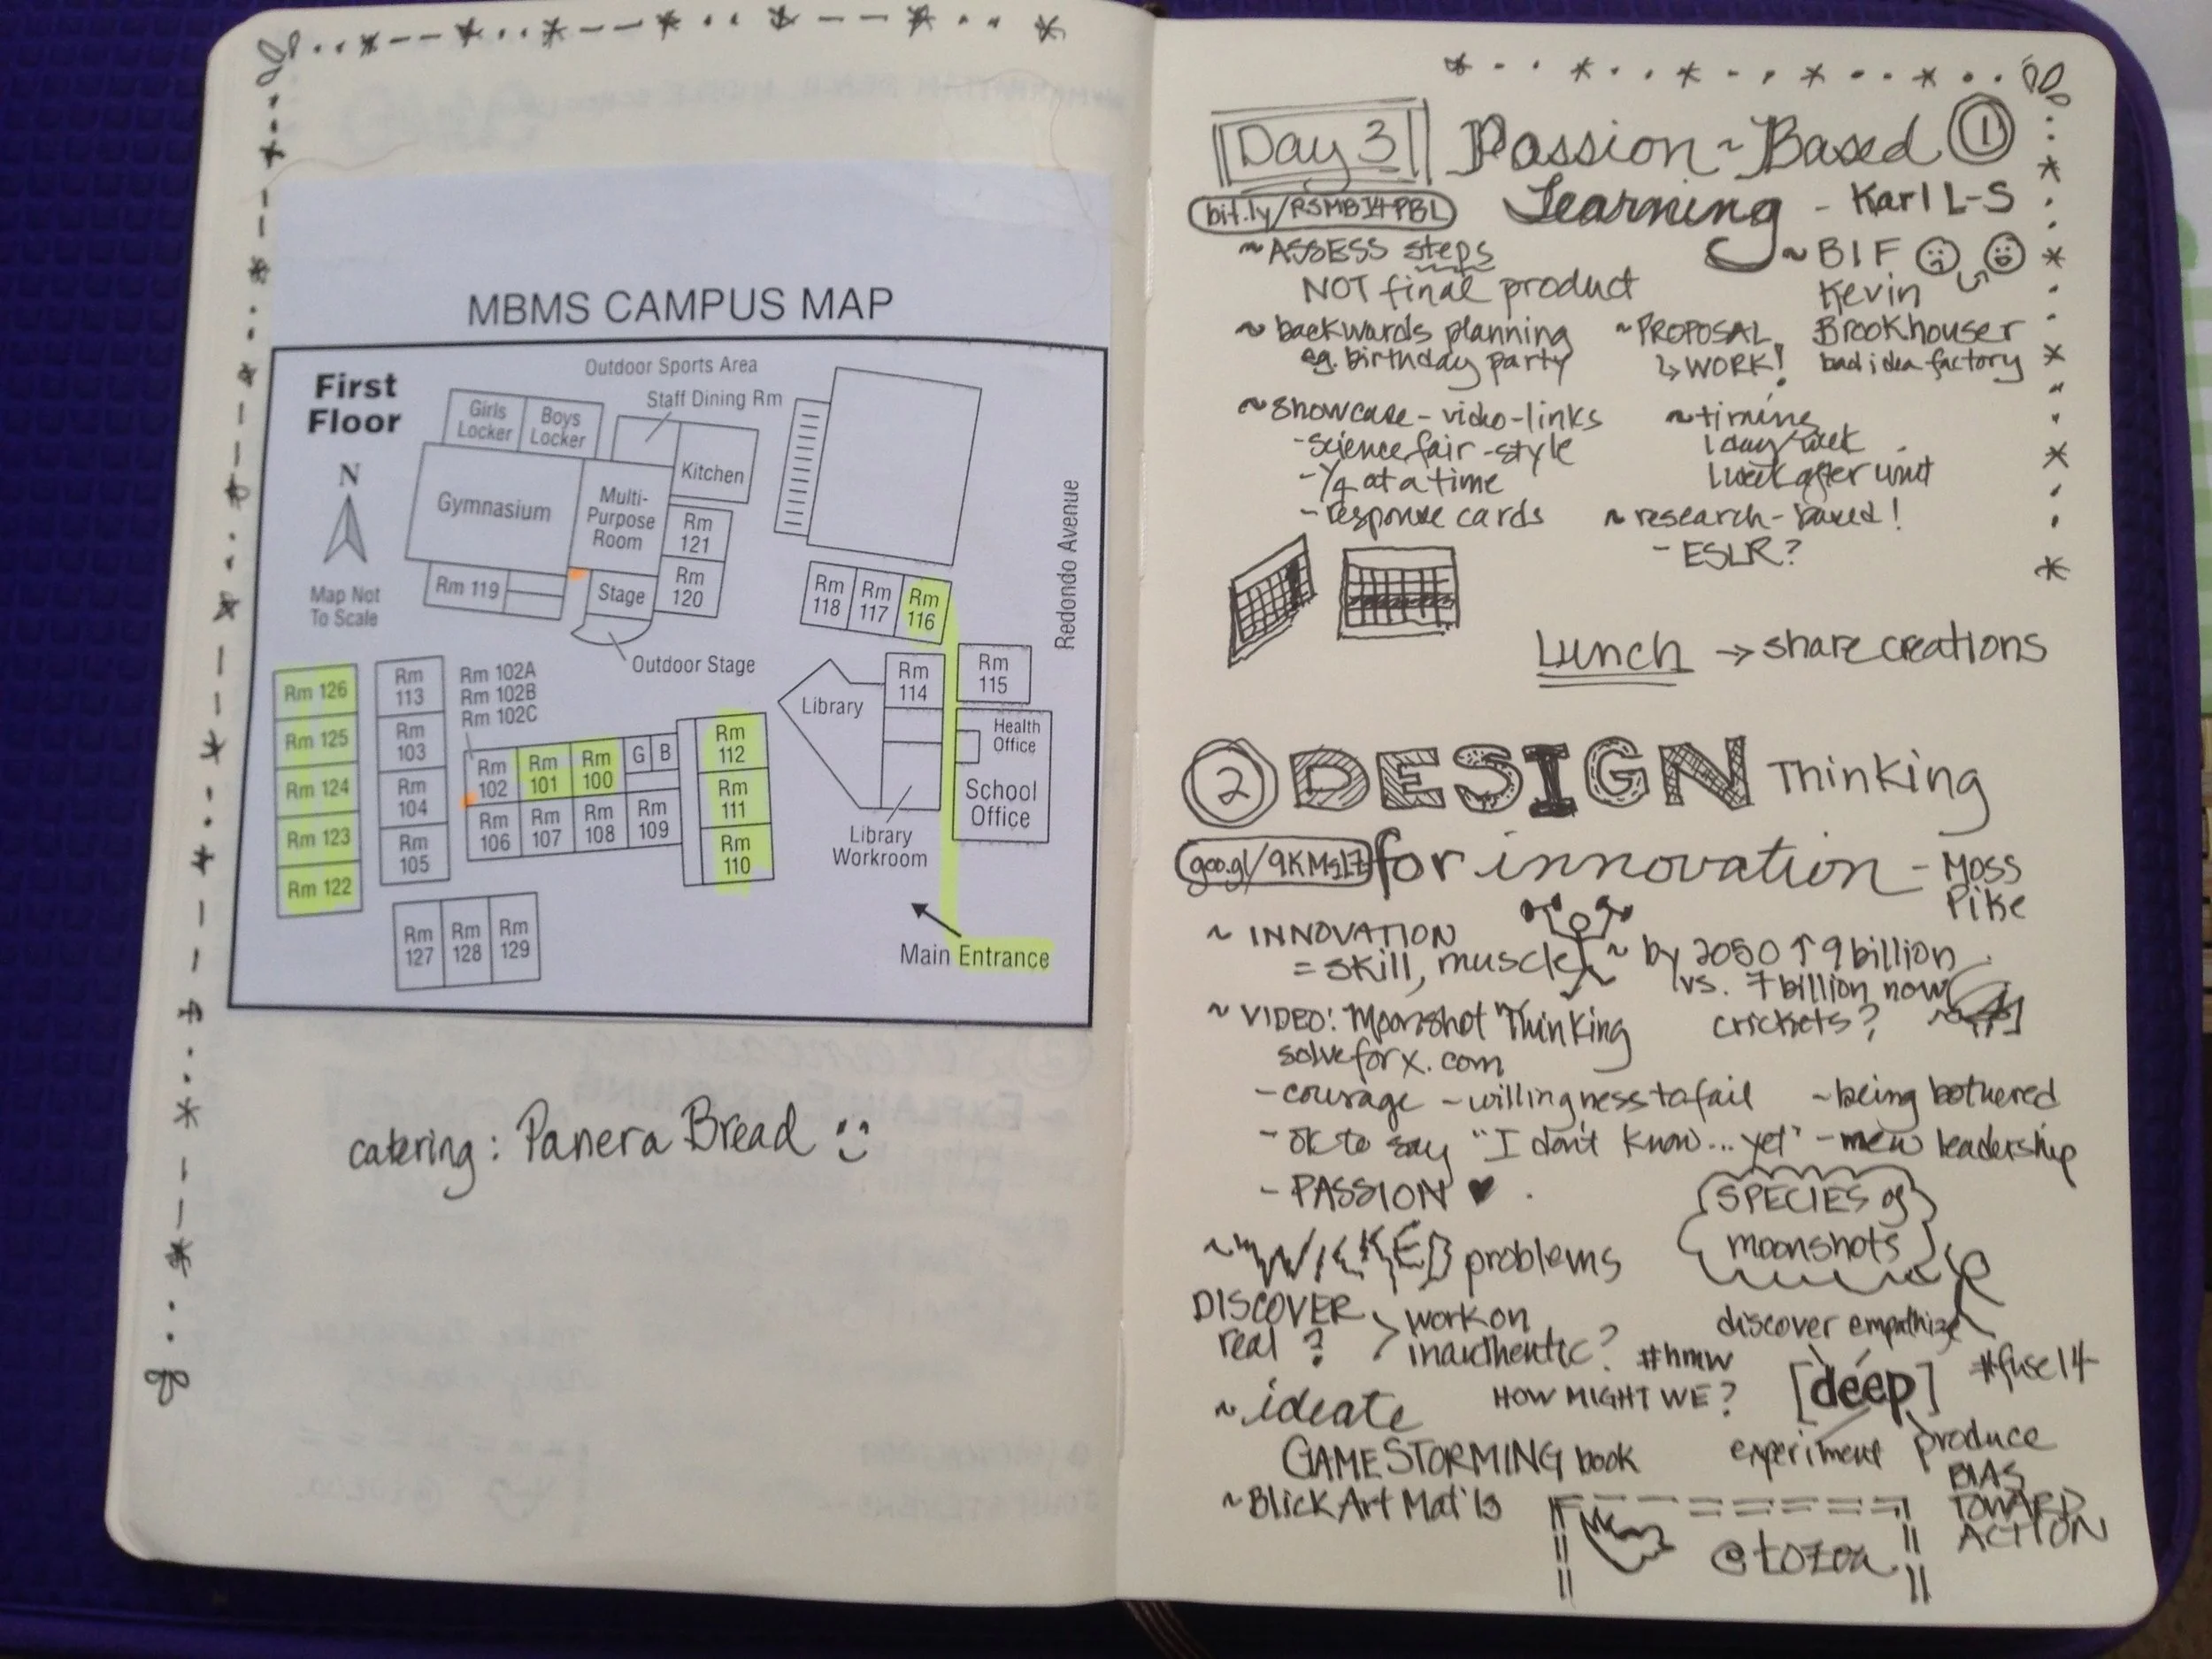 MBMS CAMPUS MAP
First
Floor
N
Map Not
To Scale
Outdoor Sports Area
Staff Dining Rm
Girls
Locker
Boys
Locker
Kitchen
Gymnasium
Multi-
Purpose
Room
Rm
121
Rm
120
Rm 119
Stage
Outdoor Stage
Redondo Avenue
Rm
118
Rm
117
Rm
116
Rm
114
Rm
115
Library
Health
Office
School
Office
Library
Workroom
Main Entrance
Rm 126
Rm 125
Rm 124
Rm 123
Rm 122
Rm
113
Rm
103
Rm
104
Rm
105
Rm 102A
Rm 102B
Rm 102C
Rm
102
Rm
101
Rm
100
G
B
Rm
106
Rm
107
Rm
108
Rm
109
Rm
112
Rm
111
Rm
110
Rm
127
Rm
128
Rm
129
catering: Panera Bread
Day 3 Passion-Based 1
Learning - Karl L-S
bit.ly/RSMB14PBL
~ ASSESS steps
NOT final product
~ BIF
Kevin
Brookhouser
bad idea factory
~ backwards planning
eg. birthday party
~ PROPOSAL
↳ WORK!
~ showcase - video - links
- science fair - style
- 1/4 at a time
- response cards
~ timing
1 day/week
1 week after unit
~ research-based!
- ESLR?
Lunch → share creations
2 DESIGN Thinking
for innovation - Moss
Pike
~ INNOVATION
= skill, muscle
~ by 2050 ↑ 9 billion
vs. 7 billion now
crickets?
~ VIDEO: "Moonshot Thinking
solveforx.com
- courage - willingness to fail ~ being bothered
- ok to say "I don't know... yet" - new leadership
- PASSION ♥
SPECIES of
moonshots
~ WICKED problems
DISCOVER
real ?
> work on
inauthentic?
#hmw
HOW MIGHT WE?
discover empathize
[deep]
experiment produce
#fuse14
~ ideate
GAMESTORMING book
BIAS
TOWARD
ACTION
~ Blick Art Mat'ls
@tozoa